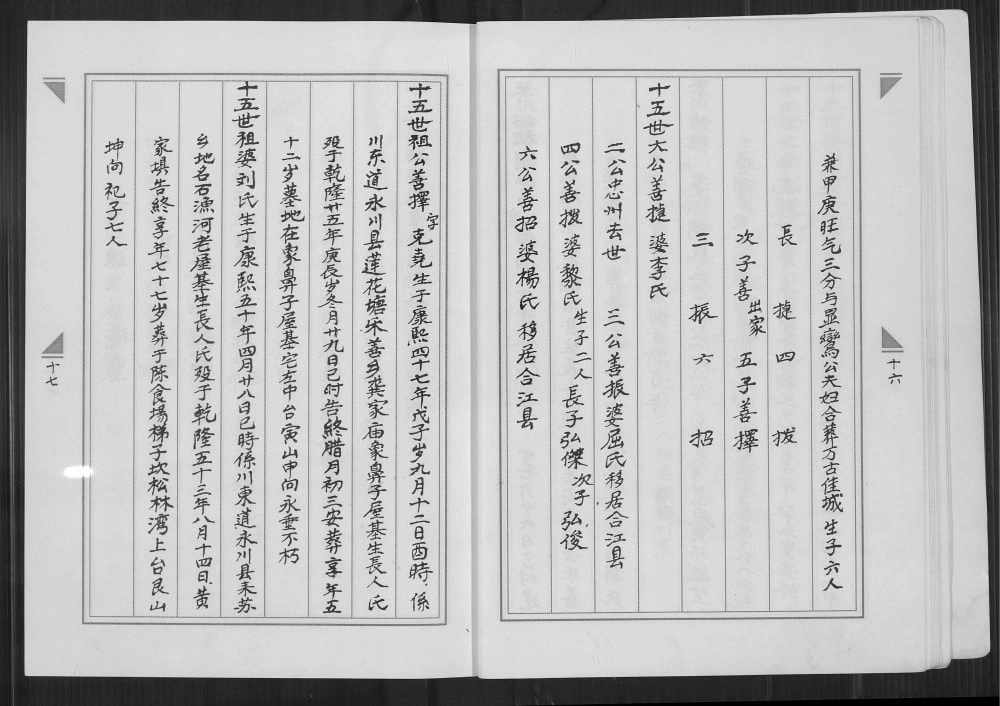 兼甲庚旺气三分与显鸾公夫妇合葬万古佳城 生子六人
長 㨗 四 拨
次子善出家 五子善擇
三 振 六 招
十五世大公善㨗 婆李氏
二公忠州去世 三公善振婆屈氏移居合江县
四公善拨 婆黎氏生子二人 長子弘傑 次子弘俊
六公善招 婆楊氏 移居合江县
十六
十五世祖公善擇 字克尭 生于康熙四十七年戊子岁九月十二日酉時.係
川东道永川县莲花塘采善乡龚家庙象鼻子屋基生長人氏
殁于乾隆廿五年庚辰岁冬月廿九日巳时告終腊月初三安葬享年五
十二岁墓地在象鼻子屋基宅左中台寅山申向永垂不朽
十五世祖婆刘氏生于康熙五十年四月廿八日巳時係川東道永川县来苏
乡地名石漁河老屋基生長人氏殁于乾隆五十三年八月十四日.黄
家填告終享年七十七岁葬于陈食場梯子坎松林湾上台艮山
坤向 祀子七人
十七